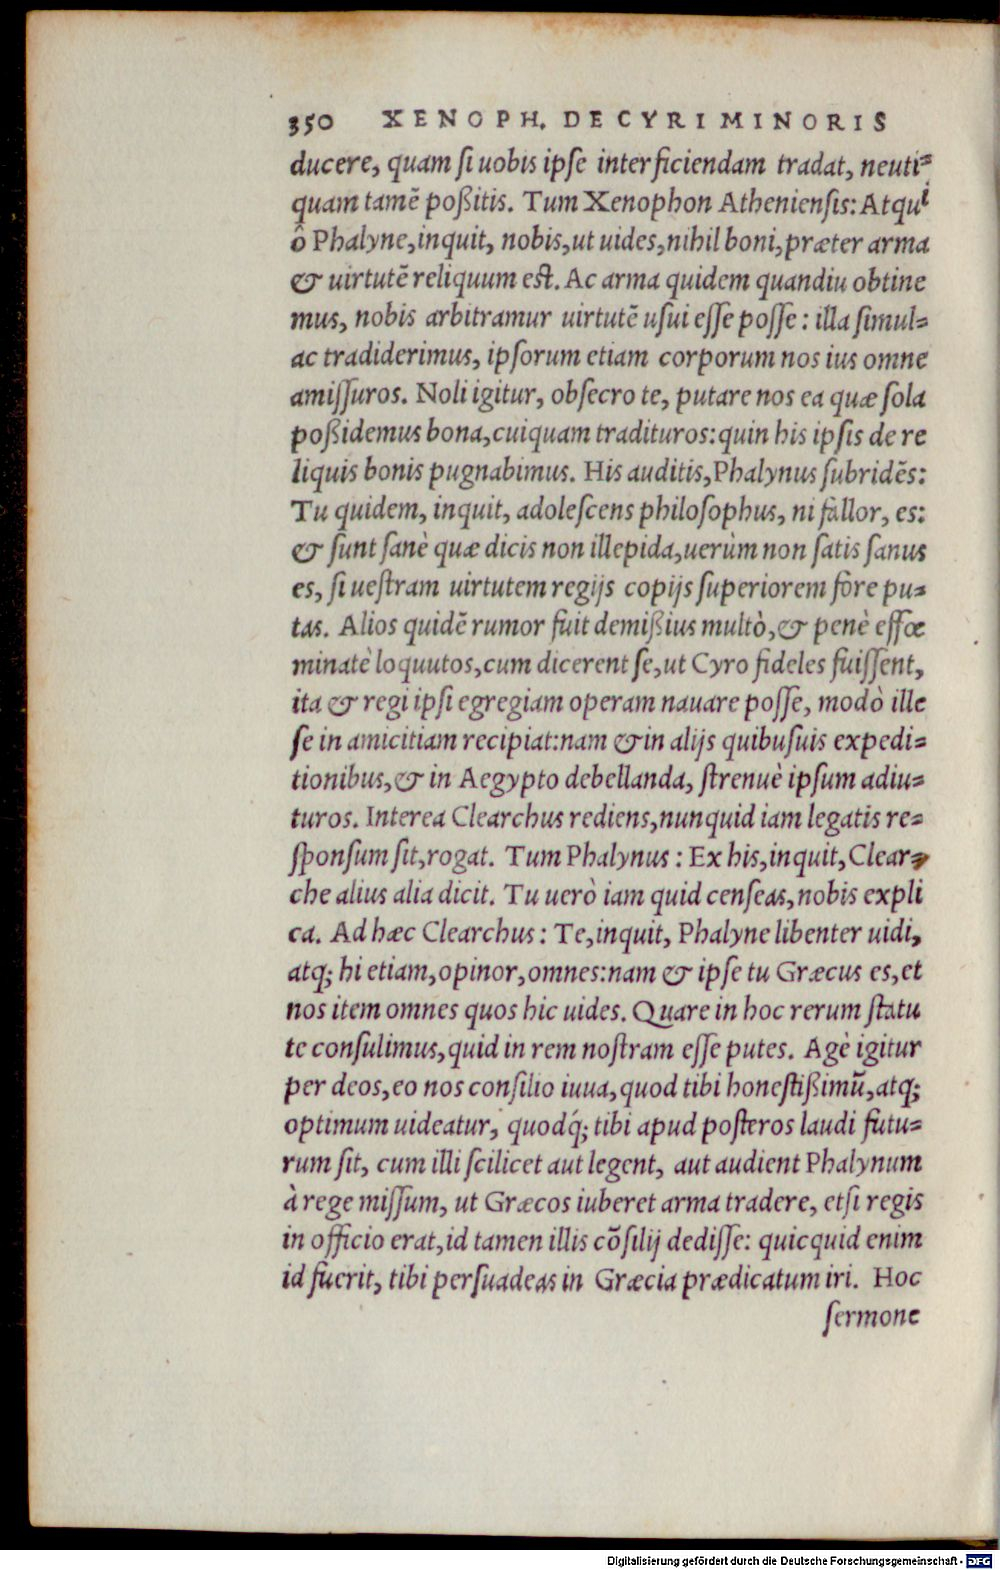 350 XENOPH. DE CYRI MINORIS
ducere, quam si uobis ipse interficiendam tradat, neuti=
quam tamē poßitis. Tum Xenophon Atheniensis: Atqui
ô Phalyne, inquit, nobis, ut uides, nihil boni, præter arma
& uirtutē reliquum est. Ac arma quidem quandiu obtine
mus, nobis arbitramur uirtutē usui esse posse: illa simul=
ac tradiderimus, ipsorum etiam corporum nos ius omne
amissuros. Noli igitur, obsecro te, putare nos ea quæ sola
poßidemus bona, cuiquam tradituros: quin his ipsis de re
liquis bonis pugnabimus. His auditis, Phalynus subridēs:
Tu quidem, inquit, adolescens philosophus, ni fallor, es:
& sunt sanè quæ dicis non illepida, uerùm non satis sanus
es, si uestram uirtutem regijs copijs superiorem fore pu=
tas. Alios quidē rumor fuit demißius multò, & penè effœ
minatè loquutos, cum dicerent se, ut Cyro fideles fuissent,
ita & regi ipsi egregiam operam nauare posse, modò ille
se in amicitiam recipiat: nam & in alijs quibusuis expedi=
tionibus, & in Aegypto debellanda, strenuè ipsum adiu=
turos. Interea Clearchus rediens, nunquid iam legatis re=
sponsum sit, rogat. Tum Phalynus: Ex his, inquit, Clear=
che alius alia dicit. Tu uerò iam quid censeas, nobis expli
ca. Ad hæc Clearchus: Te, inquit, Phalyne libenter uidi,
atq; hi etiam, opinor, omnes: nam & ipse tu Græcus es, et
nos item omnes quos hic uides. Quare in hoc rerum statu
te consulimus, quid in rem nostram esse putes. Agè igitur
per deos, eo nos consilio iuua, quod tibi honestißimū, atq;
optimum uideatur, quodq́; tibi apud posteros laudi futu=
rum sit, cum illi scilicet aut legent, aut audient Phalynum
à rege missum, ut Græcos iuberet arma tradere, etsi regis
in officio erat, id tamen illis cōsilij dedisse: quicquid enim
id fuerit, tibi persuadeas in Græcia prædicatum iri. Hoc
sermone
Digitalisierung gefördert durch die Deutsche Forschungsgemeinschaft - DFG